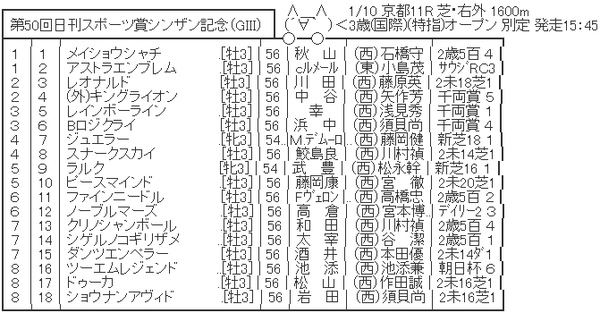 第50回日刊スポーツ賞シンザン記念(GIII) (´∀`) 1/10 京都11R 芝・右外 1600m
<3歳(国際)(特指)オープン 別定 発走15:45
1 1 メイショウシャチ .[牡3] 56 秋 山 (西)石橋守 2歳5百4
1 2 アストラエンブレム .[牡3] 56 cルメール (東)小島茂 サウジRC3
2 3 レオナルド .[牡3] 56 川 田 (西)藤原英 2未18芝1
2 4 (外)キングライオン .[牡3] 56 中 谷 (西)矢作芳 千両賞 5
3 5 レインボーライン .[牡3] 56 幸 (西)浅見秀 千両賞 1
3 6 Bロジクライ .[牡3] 56 浜 中 (西)須貝尚 千両賞 4
4 7 ジュエラー .[牝3] 54.. M.デムーロ (西)藤岡健 新芝18 1
4 8 スナークスカイ .[牡3] 56 鮫島良 (西)川村禎 2未14芝1
5 9 ラルク .[牝3] 54 武 豊 (西)松永幹 新芝16 1
5 10 ピースマインド .[牡3] 56 藤岡康 (西)宮 徹 2未20芝1
6 11 ファインニードル .[牡3] 56 Fヴェロン (西)高橋忠 2歳5百2
6 12 ノーブルマーズ .[牡3] 56 高 倉 (西)宮本博.. デイリー2 3
7 13 クリノシャンボール .[牡3] 56 和 田 (西)川村禎 2歳5百4
7 14 シゲルノコギリザメ .[牡3] 56 太 宰 (西)谷 潔 2歳5百1
7 15 ダンツエンペラー .[牡3] 56 酒 井 (西)本田優 2未14ダ1
8 16 ツーエムレジェンド .[牡3] 56 池 添 (西)池添兼 朝日杯 6
8 17 ドゥーカ .[牡3] 56 松 山 (西)作田誠 2未16芝1
8 18 ショウナンアヴィド .[牡3] 56 岩 田 (西)須貝尚 2未16芝1